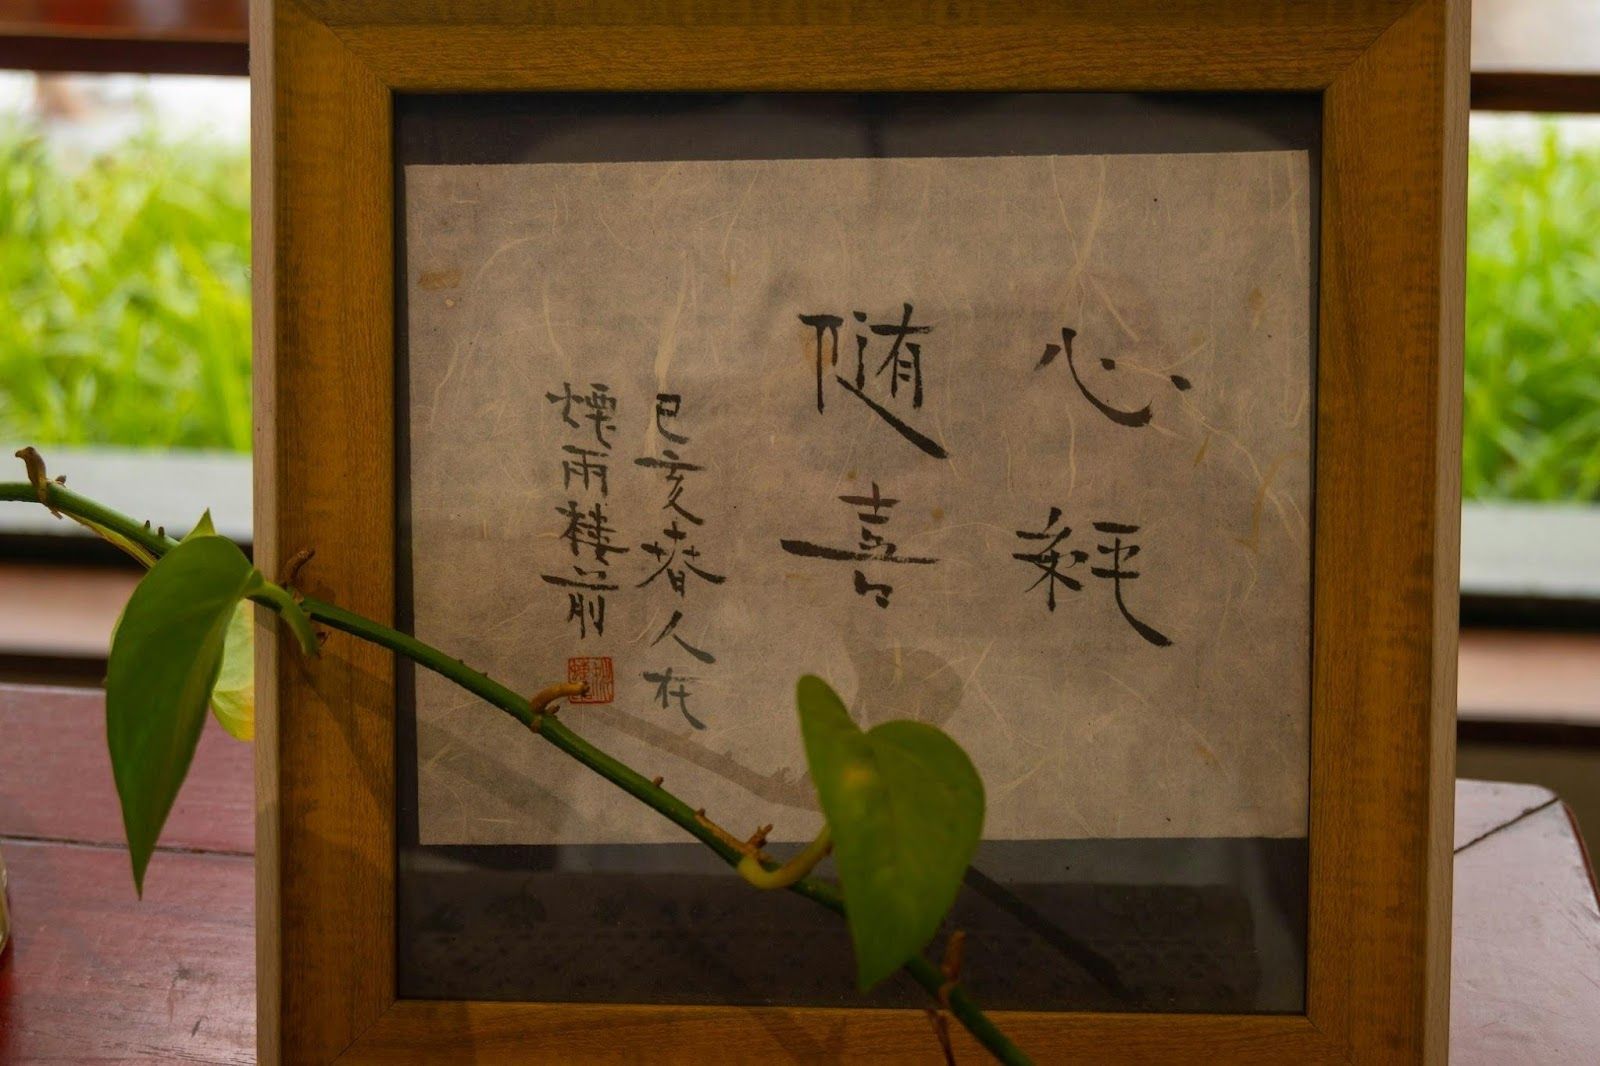 心經
随喜
己亥春人在
煙雨樓前